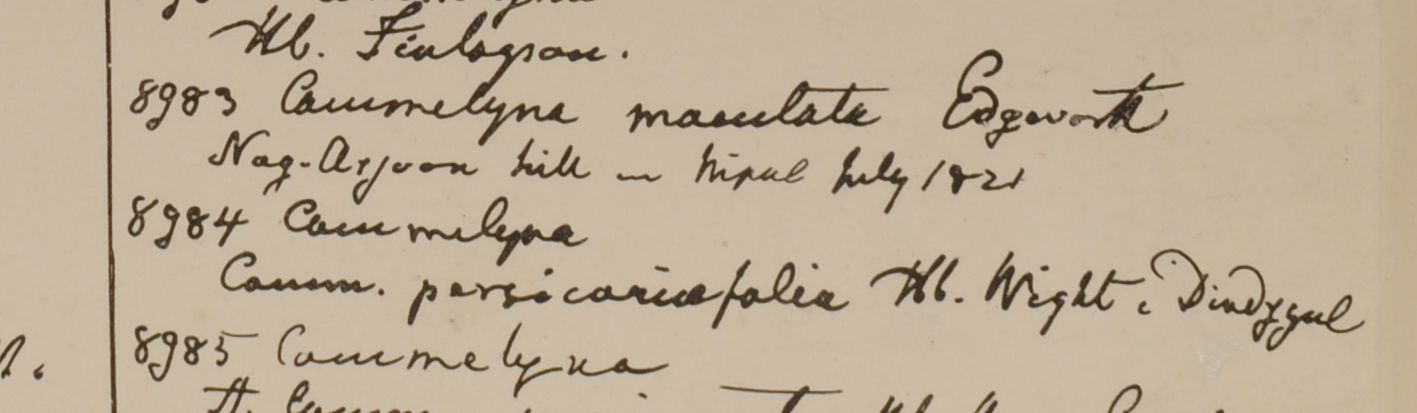 Hb. Finlayson.
8983 Commelyna maculata Edgeworth
Nag-Arjoon hill in Nipal July 1821
8984 Commelyna
Comm. persicariaefolia Hb. Wight. Dindygul
8985 Commelyna